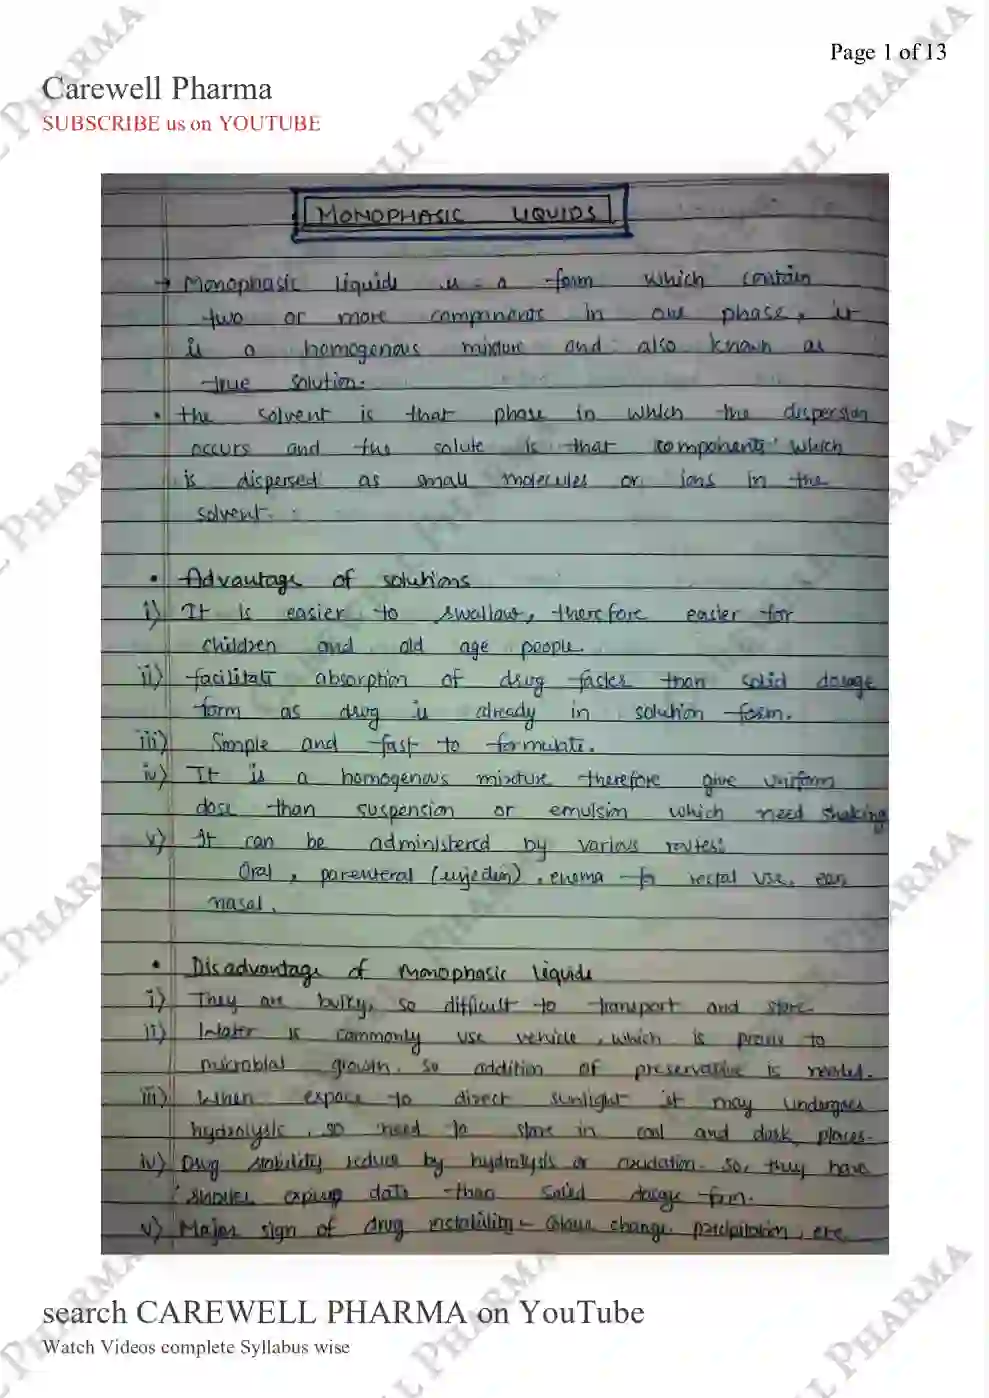 Page 1 of 13
Carewell Pharma
SUBSCRIBE us on YOUTUBE
MONOPHASIC LIQUIDS
→ Monophasic liquids is a form which contain
two or more components in one phase, it
is a homogenous mixture and also known as
true solution.
• the solvent is that phase in which the dispersion
occurs and the solute is that components which
is dispersed as small molecules or ions in the
solvent.
• Advantage of solutions
i) It is easier to swallow, therefore easier for
children and old age people.
ii) facilitate absorption of drug faster than solid dosage
form as drug is already in solution form.
iii) Simple and fast to formulate.
iv) It is a homogenous mixture therefore give uniform
dose than suspension or emulsion which need shaking
v) It can be administered by various routes:
Oral, parenteral (injection), enema for rectal use, ear,
nasal.
• Disadvantage of Monophasic liquids
i) They are bulky, so difficult to transport and store.
ii) Water is commonly use vehicle, which is prone to
microbial growth. so addition of preservative is needed.
iii) When expose to direct sunlight it may undergoes
hydrolysis, so need to store in cool and dark places.
iv) Drug stability reduce by hydrolysis or oxidation. so, they have
shorter expiry date than solid dosage form.
v) Major sign of drug instability - colour change, precipitation, etc
search CAREWELL PHARMA on YouTube
Watch Videos complete Syllabus wise
CAREWELL PHARMA